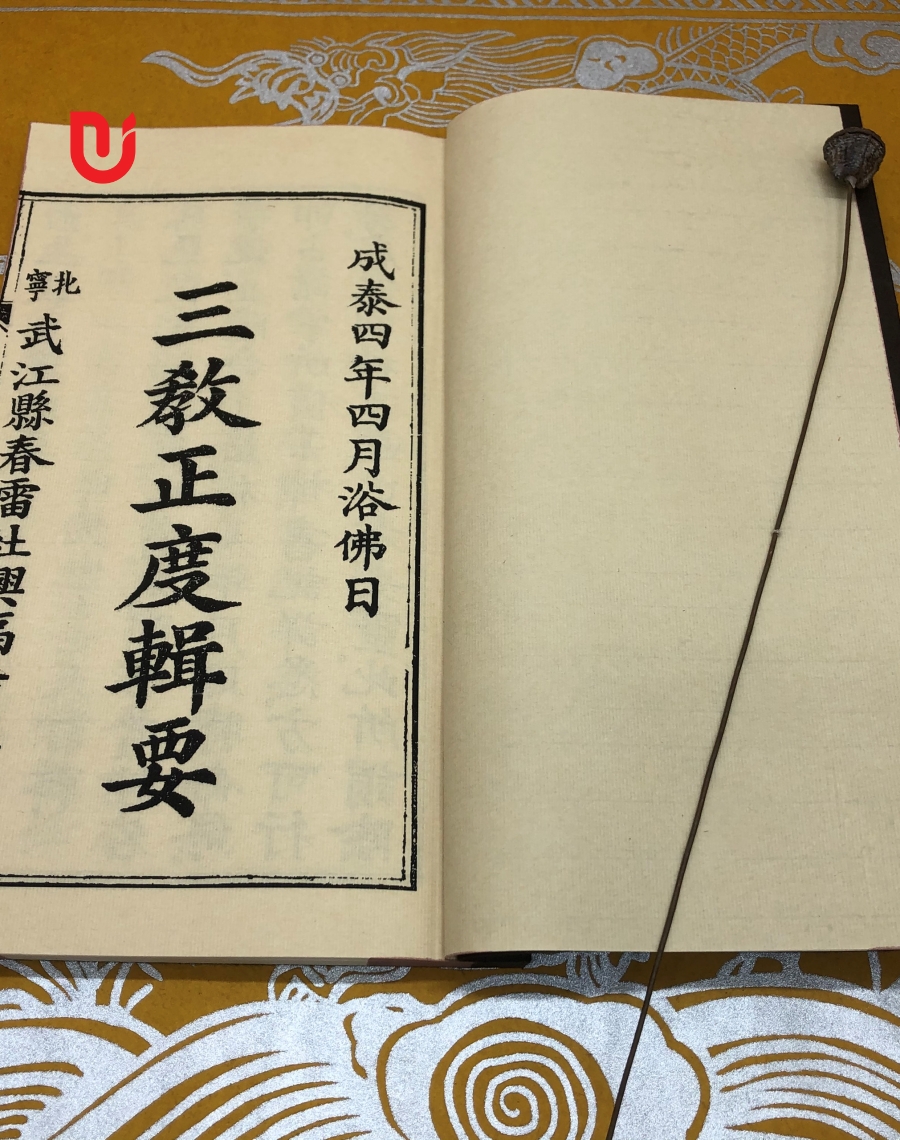 成泰四年四月浴佛日
三教正度輯要
北寧
武江縣春雷社興福